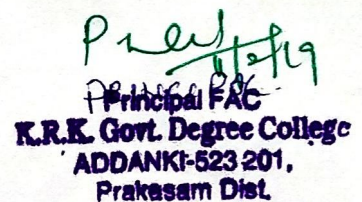 11/2/19
Principal FAC
K.R.K. Govt. Degree College
ADDANKI-523 201,
Prakasam Dist.